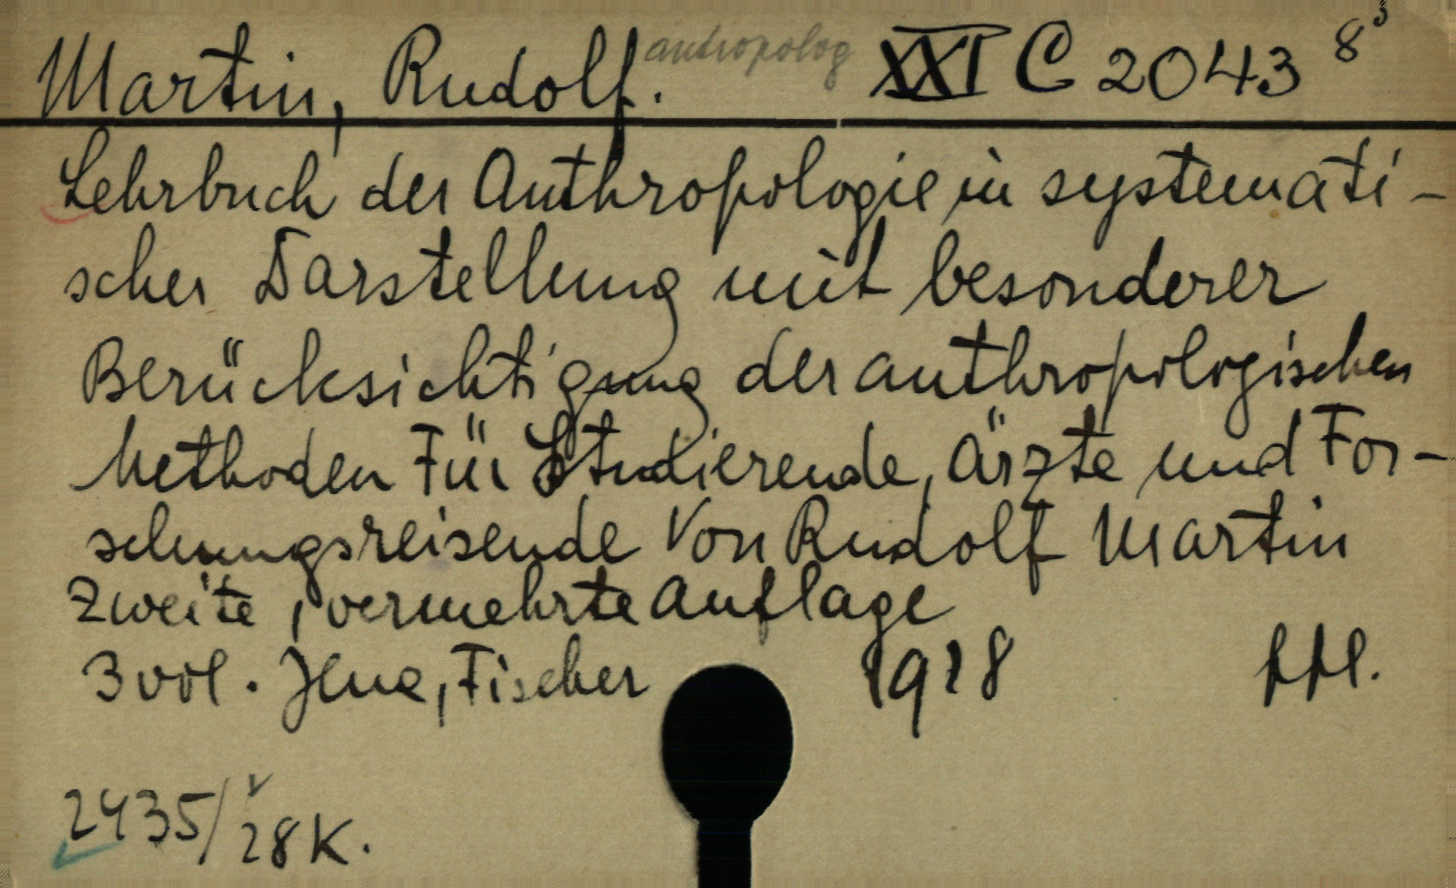 Martin, Rudolf. antropolog XXI C 2043 8°
Lehrbuch der Anthropologie in systemati-
scher Darstellung mit besonderer
Berücksichtigung der anthropologischen
Methoden Für Studierende, ärzte und For-
schungsreisende Von Rudolf Martin
Zweite, vermehrte Auflage
3 vol. Jena, Fischer 1928
2435/28 K.